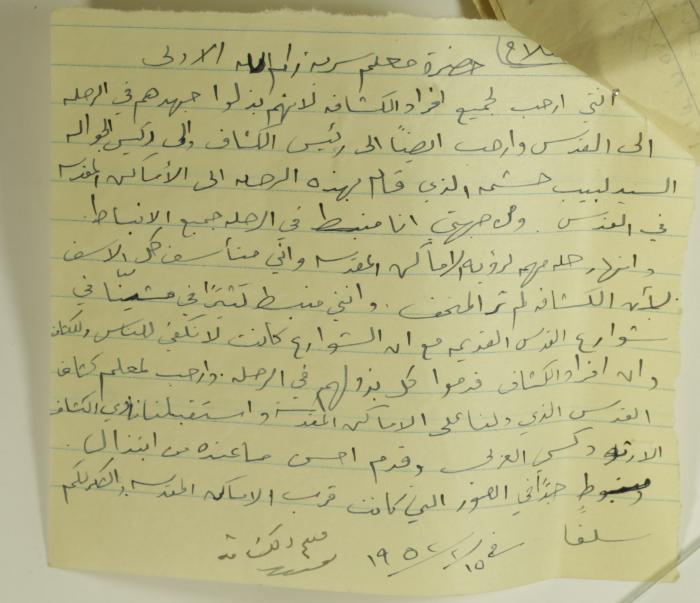 حضرة معلم سرية رام الله الاولى
انني ارحب لجميع افراد الكشافه لانهم بذلوا جهدهم في الرحله
الى القدس وارحب ايضاً الى رئيس الكشاف والى رئيس الجواله
السيد لبيب حشمه الذي قام بهذه الرحله الى الأماكن المقدسه
في القدس . ومن جهتي انا منبسط في الرحله جميع الانبساط.
وانها رحله مهمه لرؤية الاماكن المقدسه واني متأسف كل الاسف
لأن الكشافه لم تر المتحف . وانني منبسط كثيرًا في مشينّا في
شوارع القدس القديمه مع ان الشوارع كانت لا تكفي للناس وللكشاف
وان افراد الكشاف قدموا كل بذولهم في الرحله . وارحب لمعلم كشاف
القدس الذي دلنا على الاماكن المقدسة واستقبلنا نادي الكشاف
الارثوذكسي العربي وقدم احسن ما عنده من ابتذال .
ومبسوط جدًا في الصور التي كانت قرب الاماكن المقدسه والشكر لكم
سلفًا
في ١٥/٢/١٩٥٢